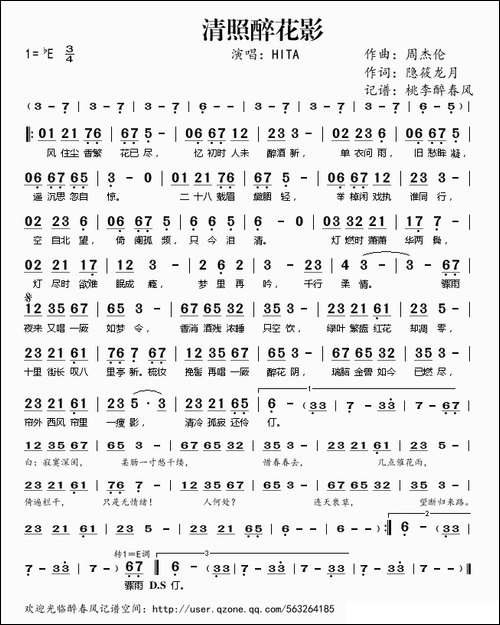 清照醉花影
1=♭E 3/4 演唱：HITA 作曲：周杰伦
作词：隐筱龙月
记谱：桃李醉春风
(3 - 7 | 3 - 7 | 3 - 7 | 6 - - | 6 - - | 6 - - )
01 21 76 | 67 5 - | 01 21 76 | 22 3 - | 02 23 3 | 06 67 5 |
风 住尘 香繁 花已 尽， 忆 初时 人未 醉酒 新， 单 衣问 雨， 旧 愁眸 凝，
06 67 65 | 3 - 0 | 01 21 76 | 67 65 | 01 21 76 | 22 3 - |
遥 沉思 忽自 惊。 二 十八 载眉 黛胭 轻， 举 棹闲 戏执 谁同 行，
02 23 6 | 06 67 5 | 06 67 65 | 6 - - | 03 32 21 | 17 7 - |
空 自北 望， 倚 阑孤 烦， 只 今 泪 清。 灯 燃时 萧萧 华两 鬓，
02 21 17 | 12 3 - | 2 6 2 | 3 - - | 23 1 | 4 3 - | 3 - 67 |
灯 尽时 欲难 眠成 瘾， 梦 里 再 吟， 千行 柔 情。 骤雨
12 35 67 | 65 3 - | 67 65 32 | 35 3 - | 23 21 61 | 22 3 - |
夜来 又唱 一阕 如梦 令， 香消 酒残 浓睡 只空 饮， 绿叶 繁盛 红花 却凋 零，
23 21 61 | 76 7 67 | 12 35 67 | 65 3 - | 67 65 32 | 35 3 - |
十里 街长 叹八 里亭 新。梳妆 挽髻 再唱 一阕 醉花 阴， 瑞脑 金兽 如今 已燃 尽，
23 21 61 | 23 5·3 | 23 21 65 | 6 - (33 | 7 - 33 | 7 - 33 | 7 - ) 67
帘外 西风 帘里 一瘦 影， 清冷 孤寂 还伶 仃。
12 35 67 | 65 3 - | 67 65 32 | 35 3 - | 23 21 61 | 22 3 - |
白：寂寞深闺， 柔肠一寸愁千缕， 惜春春去， 几点催花雨，
23 21 61 | 76 7 67 | 12 35 67 | 65 3 - | 67 65 32 | 35 3 - |
倚遍栏干， 只是无情绪！ 人何处？ 连天衰草， 望断归来路。
23 21 61 | 23 5 - | 23 21 65 | 6 - - | 6 - - | 6 - - :| 6 - (33 |
转1=E调
7 - 33 | 7 - 33 | 7 - ) 67 | 6 - (33 | 7 - 33 | 7 - 33 | 7 - - )
骤雨 D.S 仃。
欢迎光临醉春风记谱空间：http://user.qzone.qq.com/563264185